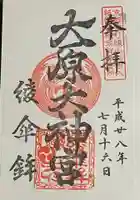 奉拝
大原大神宮
綾傘鉾
平成廿八年
七月十六日